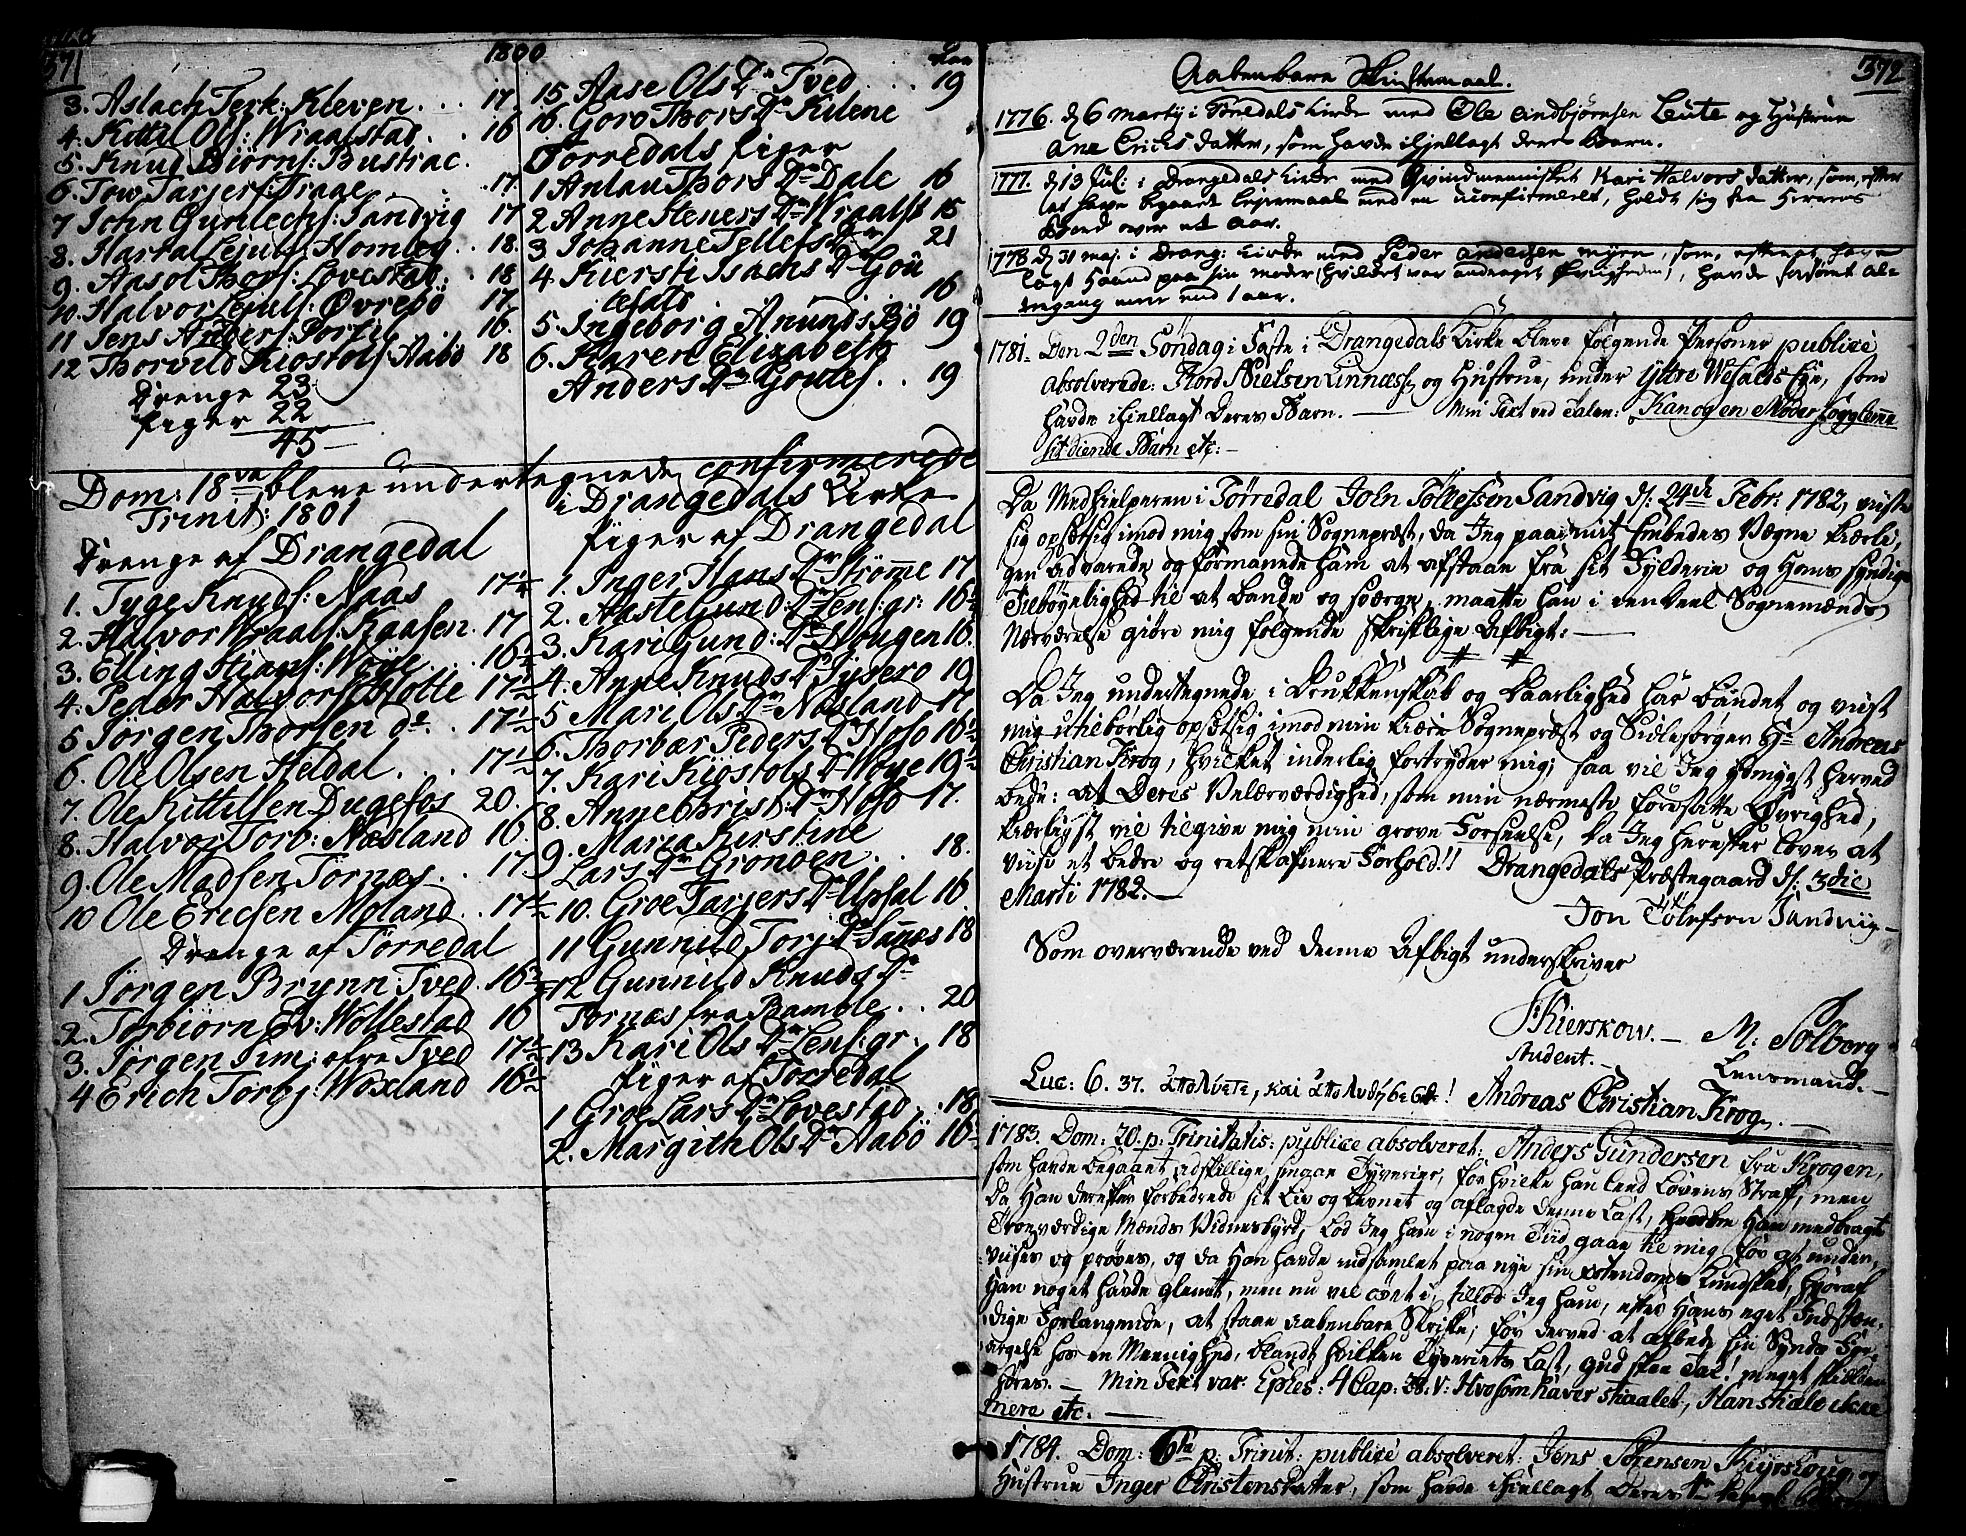 371
1800
3. Aslach Terk: Kleven . . . 17.
4. Kittil Ols: Wraalstad . . 16
5. Knud Biørns: Bustrac.
6. Tow Tarjers: Traae . . 17.
7 John Gunlechs: Sandvig 17
8. Hartal Lejuls: Homleg . . 18.
9. Aasol Thors: Lovestad . . 18
10. Halvor Lejuls: Øvrebö 17.
11 Jens Anders: Porsel 16.
12 Thorvild Kiostols: Aabö 18
Drenge 23
Piger 22
45
15. Aase Ols Dr Tved . . . 19
16. Goro Thors Dr Kilene
Torredals Piger
1 Anlau Thors Dr Dale 16
2 Anne Steners Dr Wraalst 15
3 Johanne Tellefs Dr 21
4. Kiersti Isachs Dr Gou
16
5. Ingeborg Anunds Bö 19
6. Karen Elizabeth
Anders Dr Goules . . 19
Dom: 18va bleve undertegnede confirmerede
Trinit: 1801
i Drangedals Kirke
Drenge af Drangedal
1. Tyge Knuds: Naas 17½
2. Halvor Wraals: Kaasen . 17
3. Elling Stians: Woje . . 16½
4. Peder Halvors: Holte 17½
5 Jørgen Thorsen do . . 17½
6. Ole Olsen Heldal . . 17½
7. Ole Kittilsen Dugefos 20.
8. Halvor Torb: Næsland 16.
9. Ole Madsen Tornæs . . 17
10 Ole Ericsen Moland . . 17½
Drenge af Torredal
1 Jørgen Brynn Tved . 16¾
2. Torbiorn Ev: Wollestad 16
3. Jørgen Sim: øfre Tved 17½
4 Erich Torbj: Woxland 16½
Piger af Drangedal
1. Inger Hans Dr Strōme 17
2. Aaste Gund: Dr Lens: gr: 16½
3. Kari Gund: Dr Hougen 16.
4. Anne Knuds Dr Gysero 19
5 Mari Ols Dr Næsland 17
6. Thorbær Peders Dr Hoso 16½
7. Kari Kiøstols Dr Woje 19½
8. Anne Christ: Dr Hoso 17.
9. Maria Kirstine
Lars Dr Gronoen . . 18.
10. Groe Tarjers Dr Upsal 16.
11 Gunnild Torj: Dr Sanes 18
12 Gunnild Knuds Dr
Tornæs fra Bamble . . 20
13 Kari Ols Dr Lens: gr. 18
Piger af Torredal
1 Groe Lars Dr Lovestad . 18
2. Margith Ols Dr Aabö 16½
372
Aabenbare Skriftemaal.
1776. d 6 Martij i Tøredals Kirke med Ole Andbjørnsen Leute og Hustrue
Ane Erichs datter, som havde ihjellagt deres Barn.
1777. d 13 Jul: i Drangedals Kirke med Qvindmennisket Kari Halvors datter, som, efter
at have begaaet Lejermaal med en uconfirmeret, holdt sig fra Herrens
Bord over et Aar.
1778 d 31 Maj. i Drang: Kirke med Peder Andersen Myre, som, efter at have
lagt Haand paa sin Moder (hvilket var andraget Øvrigheden), havde forsømt al-
tergang meer end 1 aar.
1781. Den 2den Søndag i Faste i Drangedals Kirke bleve følgende Personer publice
absolverede: Thord Nielsen Linnæs, og Hustrue, under Yttre Wefalds Eje, som
havde ihiellagt Deres Barn. — Min Text ved Talen: Kan og en Moder forglemme
sit diende Barn etc: —
Da Medhielperen i Tørredal John Tøllefsen Sandvig d: 24de Febr: 1782, viiste
sig opsetsig imod mig som sin Sognepræst, da Jeg paa mit Embedes Vægne kierli-
gen advarede og formanede ham at afstaae fra sit Fylderie og Hans syndige
Tilbøyelighed til at bande og sværge, maatte han i een Deel Sognemænds
Nærværelse giøre mig følgende skriftlige Afbigt: —
Da Jeg undertegnede i Drukkenskab og Daarlighed har bandet og viist
mig utilbørlig opsetsig imod min kiere Sognepræst og Sielesørger Hr Andreas
Christian Krog, hvilket inderlig fortryder mig; saa vil Jeg ydmygst herved
bede: at Deres Velærværdighed, som min nærmeste foresatte Øvrighed,
kierligst vil tilgive mig min grove Forseelse, da Jeg herefter lover at
viise et bedre og retskafnere Forhold!! Drangedals Præstegaard d: 3die
Marti 1782. —
Jon Tølefsen Sandviig —
Som overværende ved denne Afbigt underskriver
Kierskow. — M: Solberg
Student. — Lensmand. —
Luc: 6. 37. Andreas Christian Krog. —
1783. Dom: 20. p: Trinitatis: publice absolveret: Anders Gundersen fra Krogen,
som havde begaaet adskillige smaae Tyverier, for hvilke han leed Lovens Straf, men
da Han derefter forbedrede sit Liv og Levnet og aflagde denne Last, Han medbragte
Troeværdige Mænds Vidnesbyrd, lod Jeg ham i nogen Tiid gaae til mig for at under-
viises og prøves, og da Han havde indsamlet paa nye sin Kundskab, hvoraf
Han noget havde glemt, men nu vel øvet i, tillod Jeg ham, efter Hans eget Indstæn-
dige Forlangende, at staae aabenbare Skrifte, for derved at afbede sin Synds For-
argelse hos en Meenighed, blandt hvilken Tyveriets Last, Gud skee Tak! meget sielden
høres. — Min Text var Ephes: 4 Cap: 28. V: Hvo som haver stiaalet, Han stiæle ikke
mere etc. —
1784. Dom: 6ta p: Trinit: publice absolveret: Jens Sørensen og
Hustrue Inger Christensdatter, som havde ihiellagt Deres